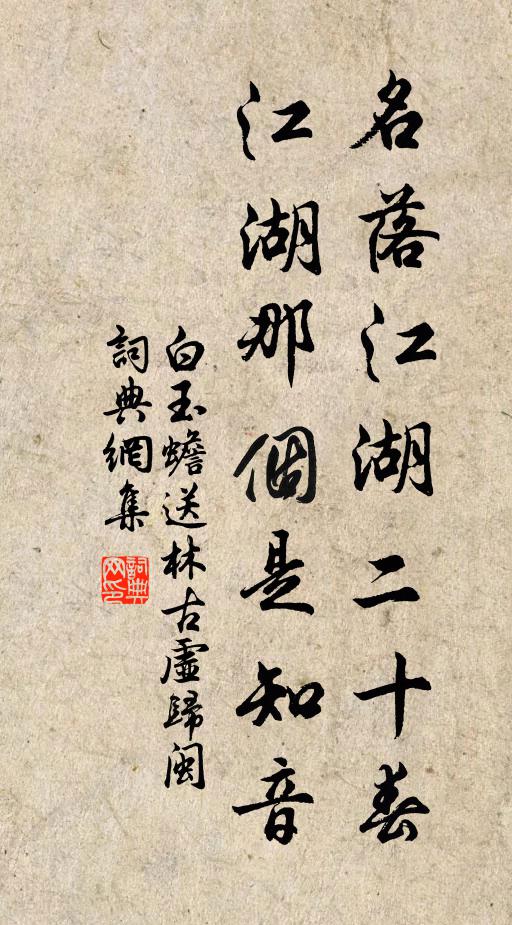 名落江湖二十春
江湖那個是知音
白玉蟾送林古虛歸閩
詞典網集
詞典网印